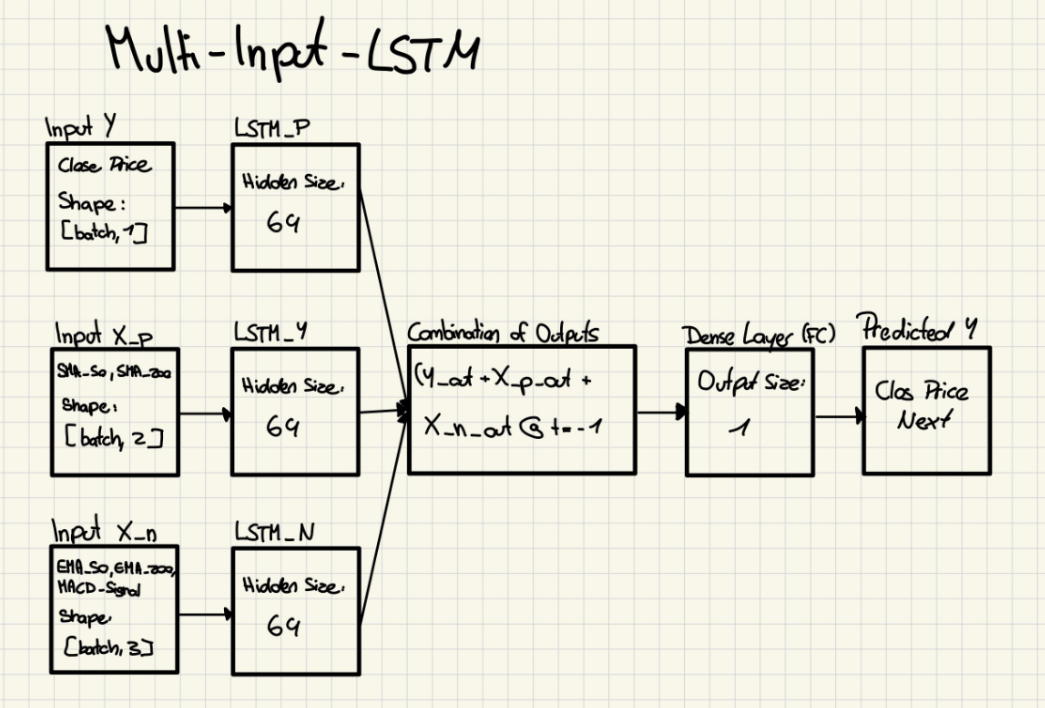 Multi-Input-LSTM
Input Y
Close Price
Shape:
[batch, 1]
LSTM_P
Hidden Size:
64
Input X_p
SMA_50, SMA_200
Shape:
[batch, 2]
LSTM_Y
Hidden Size:
64
Input X_n
EMA_50, EMA_200,
MACD-Signal
Shape:
[batch, 3]
LSTM_N
Hidden Size:
64
Combination of Outputs
(Y_out + X_p_out +
X_n_out @ t=-1
Dense Layer (FC)
Output Size:
1
Predicted Y
Clos Price
Next